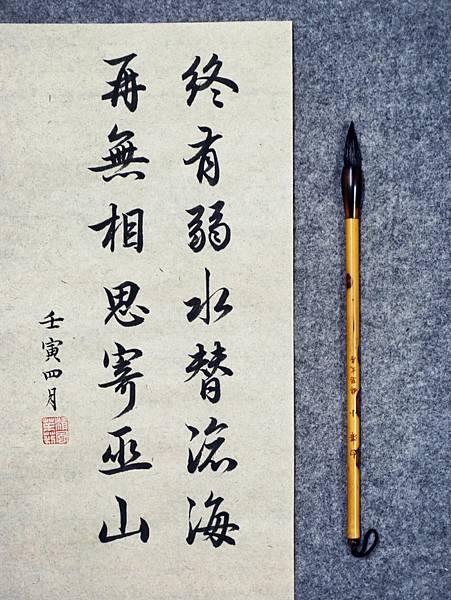 終有弱水替滄海
再無相思寄巫山
壬寅四月